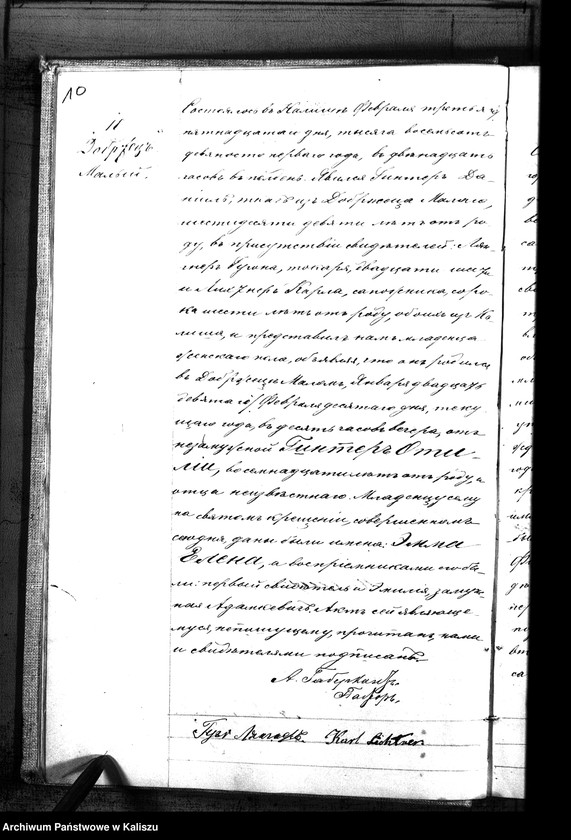 10
11
Добрżецъ
Малый.
Состоялось въ Калишѣ Февраля третьяго
пятнадцатаго дня, тысяча восемьсотъ
девяносто перваго года, въ двѣнадцать
часовъ въ полдень. Явился Гинтеръ Да-
ніилъ, изъ Добржеца Малаго,
шестидесяти девяти лѣтъ отъ ро-
ду, въ присутствіи свидѣтелей:
токаря, двадцати
и Карла, сапожника, соро-
ка шести лѣтъ отъ роду, обоихъ изъ Ка-
лиша, и представилъ намъ младенца
женскаго пола, объявляя, что онъ родился
въ Добржецѣ Маломъ, Января двадцать
девятаго / Февраля десятаго дня, теку-
щаго года, въ десять часовъ вечера, отъ
незамужной Гинтеръ Оти-
ліи, восемнадцати лѣтъ отъ роду и
отца неизвѣстнаго. Младенцу сему
на святомъ крещеніи, совершенномъ
сегодня, даны были имена: Эмма
Елена, а воспріемниками его бы-
ли: первый свидѣтель и Эмилія, замуж-
ная Аданкевичъ. Актъ сей объявляюще-
муся, неписущему, прочитанъ, нами
и свидѣтелями подписанъ.
А.
Пасторъ.
Karl Lichtner
Archiwum Państwowe w Kaliszu